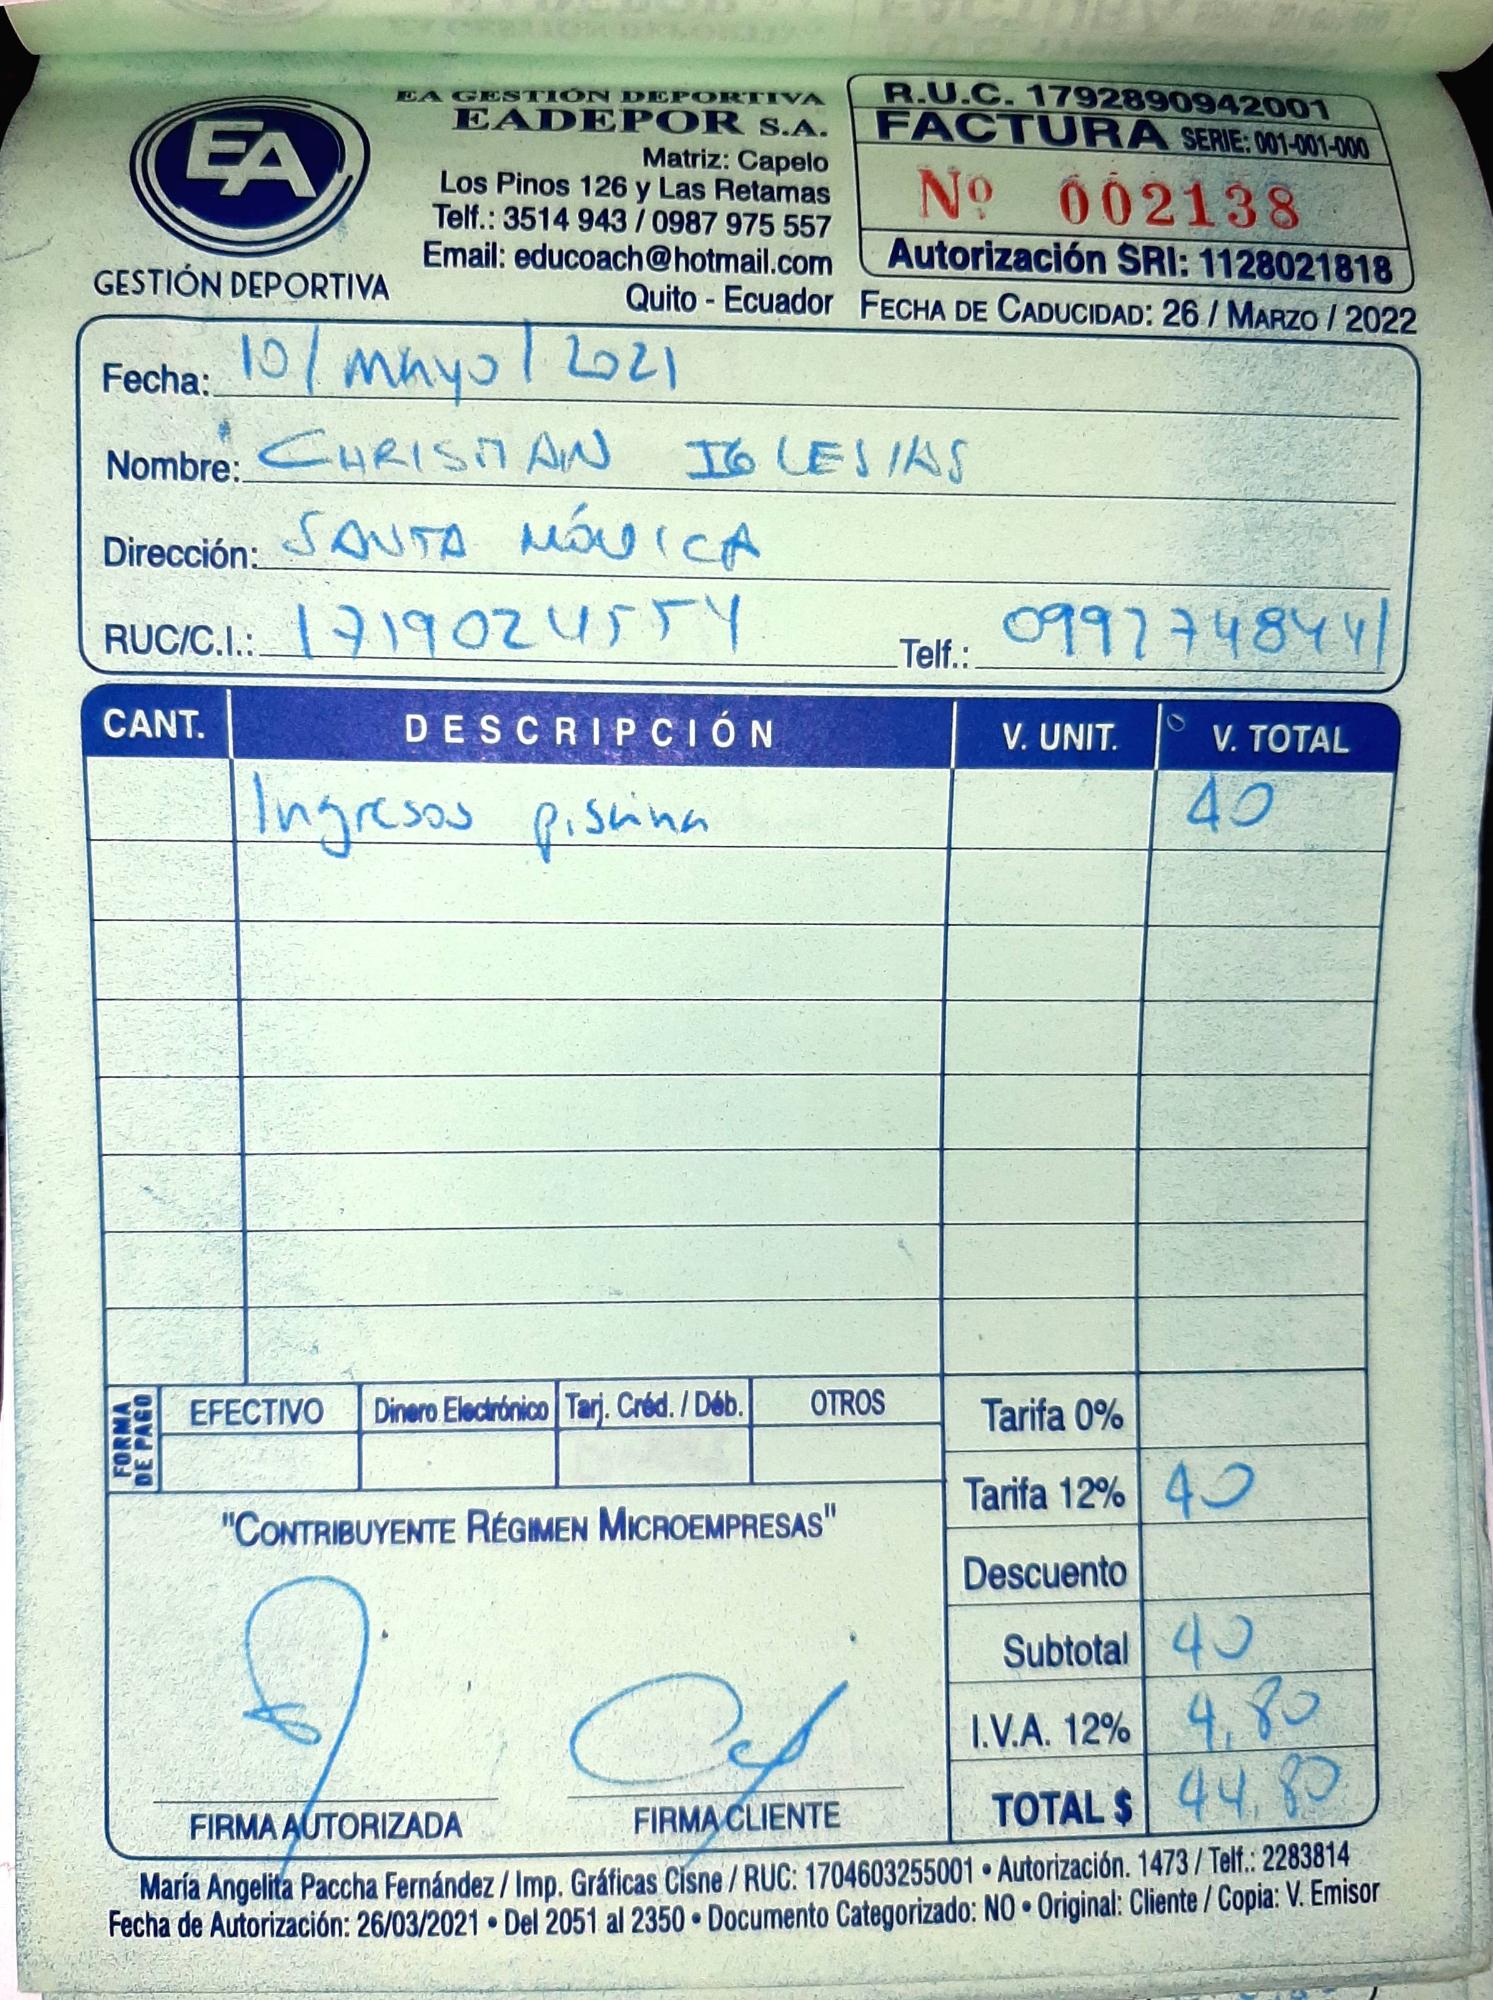 EA
GESTIÓN DEPORTIVA
EA GESTIÓN DEPORTIVA
EADEPOR S.A.
Matriz: Capelo
Los Pinos 126 y Las Retamas
Telf.: 3514 943 / 0987 975 557
Email: educoach@hotmail.com
Quito - Ecuador
R.U.C. 1792890942001
FACTURA SERIE: 001-001-000
Nº 002138
Autorización SRI: 1128021818
FECHA DE CADUCIDAD: 26 / MARZO / 2022
Fecha: 10/mayo/2021
Nombre: CHRISTIAN IGLESIAS
Dirección: SANTA MÓNICA
RUC/C.I.: 1719024554 Telf.: 0997748441
CANT. DESCRIPCIÓN V. UNIT. V. TOTAL
Ingresos piscina 40
FORMA DE PAGO
EFECTIVO Dinero Electrónico Tarj. Créd. / Déb. OTROS
Tarifa 0%
Tarifa 12% 40
Descuento
Subtotal 40
I.V.A. 12% 4,80
TOTAL $ 44,80
"CONTRIBUYENTE RÉGIMEN MICROEMPRESAS"
FIRMA AUTORIZADA FIRMA CLIENTE
María Angelita Paccha Fernández / Imp. Gráficas Cisne / RUC: 1704603255001 • Autorización. 1473 / Telf.: 2283814
Fecha de Autorización: 26/03/2021 • Del 2051 al 2350 • Documento Categorizado: NO • Original: Cliente / Copia: V. Emisor